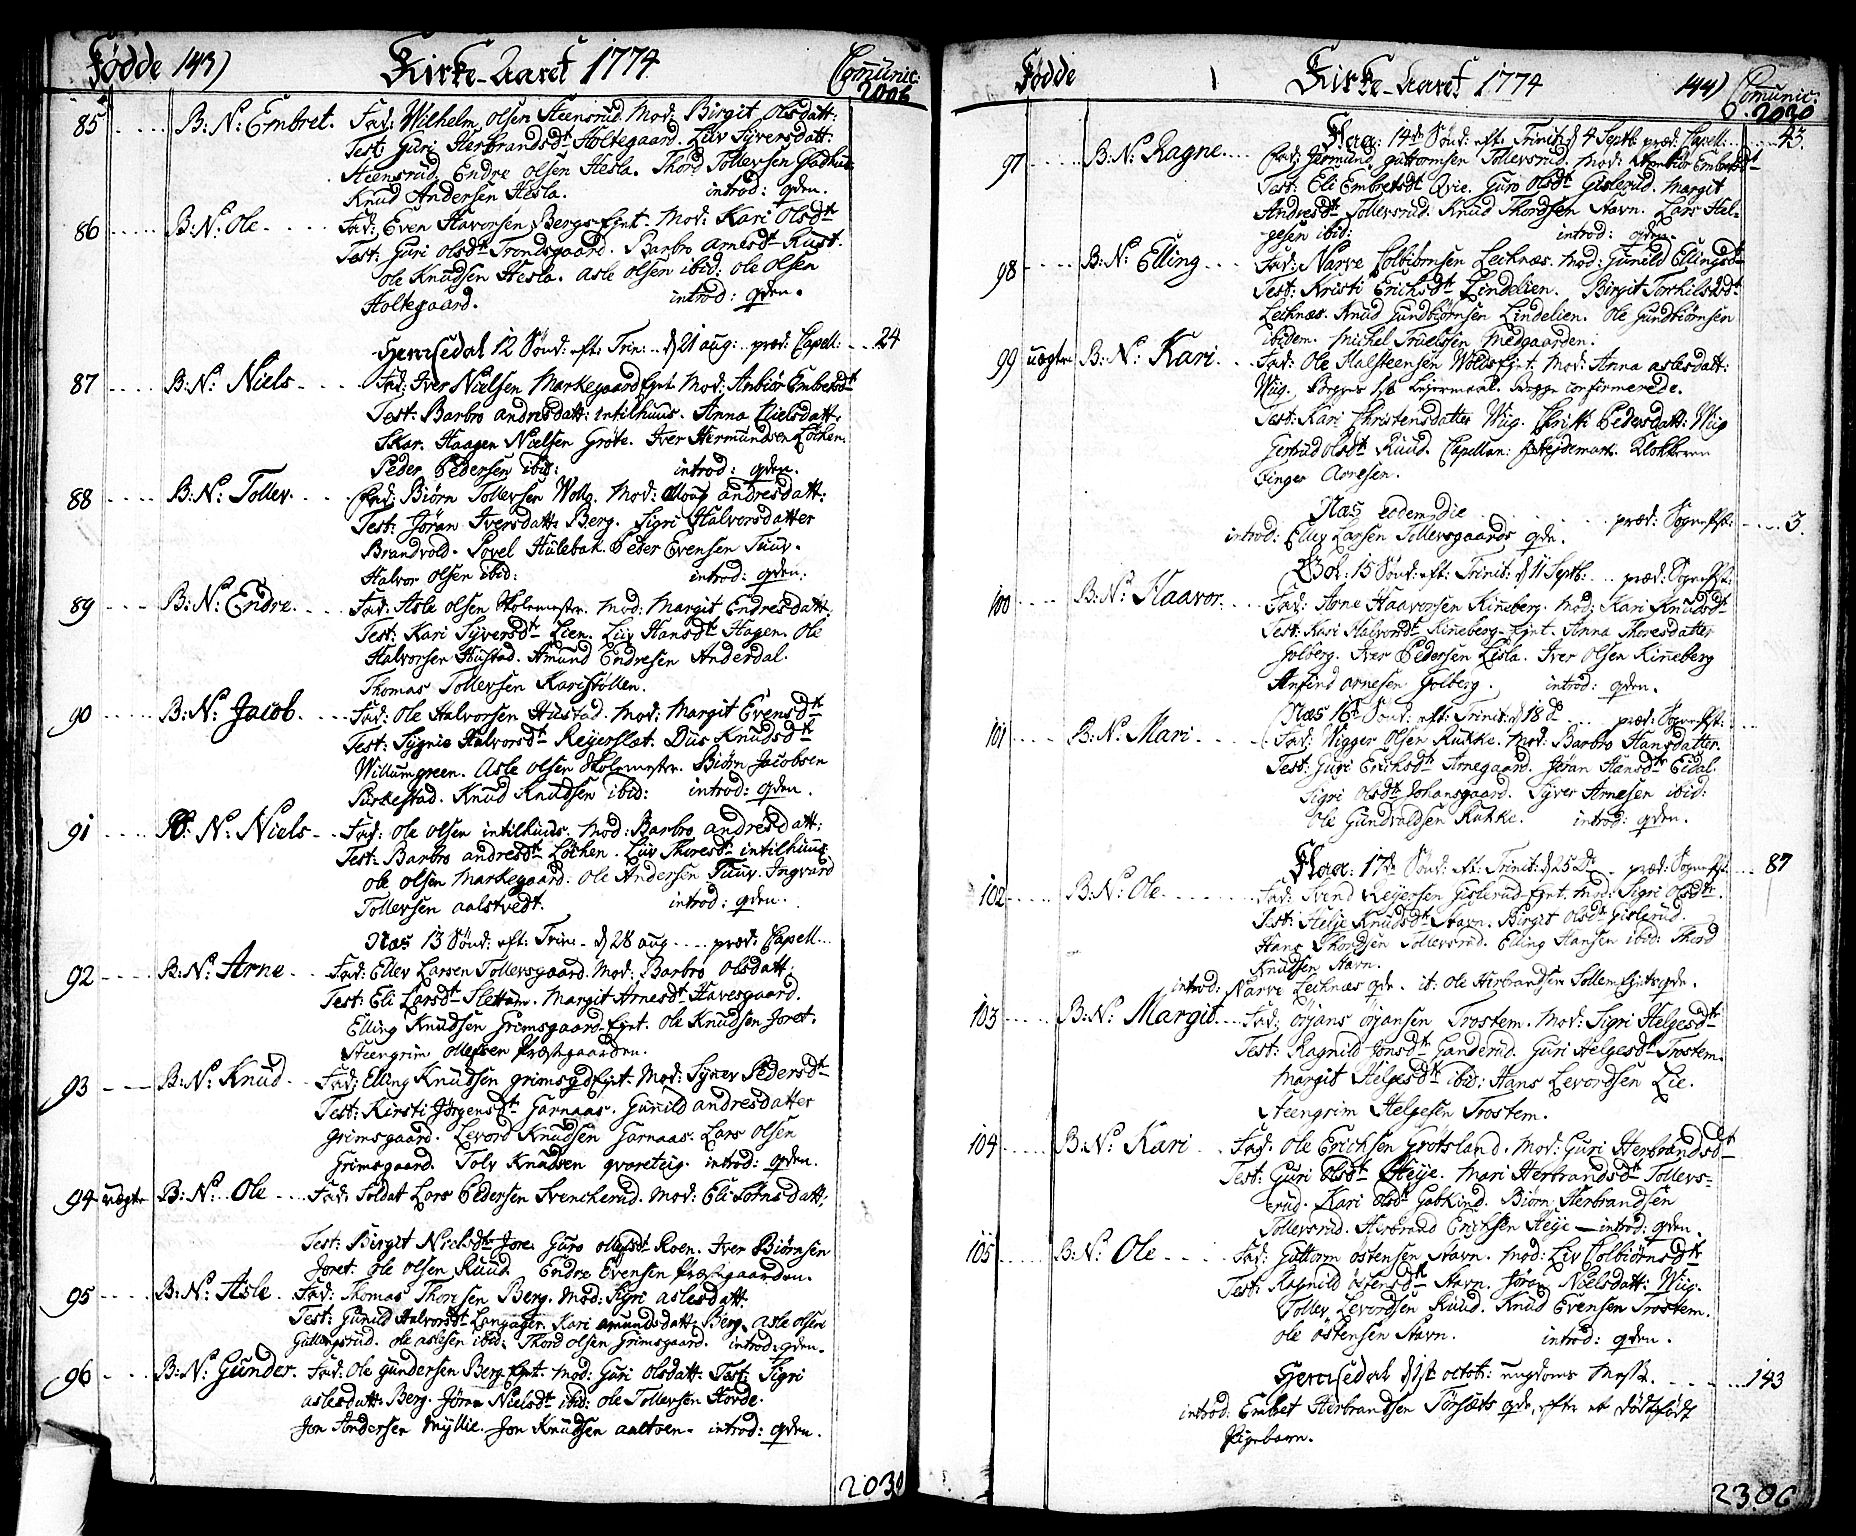 Fødde 143) Kirke-Aaret 1774 Comunic:
2006
85 B: N: Embret. Fad: Wilhelm olsen Steensrud. Mod: Birgit Olsdatt:
Test: Guri Herbrandsdt Holtegaard. Liv Syversdatt:
Steensrud. Endre olsen Hesla. Thord Tollefsen
Knud Andersen Hesla. introd: qvden.
86 B: N: Ole Fad: Even Havorsen Bergs Eynt. Mod: Kari Olsdt
Test: Guri olsdt Trondsgaard. Barbro arnesdt Rust.
ole Knudsen Hesla. asle olsen ibid: ole olsen
Holtegaard. introd: qvden.
Hemsedal 12 Sønd: eft: Trin: d 21 aug: præd: Capell: 24
87 B: N: Niels Fad: Iver Nielsen Markegaard Eynt. Mod: Anbiør Embretsdt
Test: Barbro andresdatt: intilhuus. Anna Nielsdatt.
Skar. Haagen Nielsen Grøte. Iver Hermundsen Løchen.
Peder Pedersen ibid: introd: qvden.
88 B: N: Tollev. Fad: Biørn Tollevsen Woll. Mod: andresdatt:
Test: Jøran Iversdatt: Berg. Sigri Halvorsdatter
Brandvold. Povel Hulebak. Peder Evensen Tuuv.
Halvor olsen ibid: introd: qvden:
89 B: N: Endre. Fad: Asle olsen Skolemester. Mod: Margit Endresdatt.
Test: Kari Syversdt Lien. Liv Hansdt Hagen. Ole
Halvorsen Hustad. Amund Endresen Anderdal.
Thomas Tollevsen Karistøllen.
90 B: N: Jacob. Fad: Ole Halvorsen Hustad. Mod: Margit Evensdt
Test: Sygnie Halvorsdt Reyerslæt. Dus Knudsdt
Willumgreen. Asle olsen Skolemester. Biørn Jacobsen
Kirkestad. Knud Knudsen ibid: introd: qvden.
91 B: N: Niels Fad: ole olsen intilhuus. Mod: Barbro andresdatt:
Test: Barbro andresdt Løchen. Liv Thoresdt intilhuus.
ole olsen Markegaard. ole Andersen Tuuv. Ingvard
Tollevsen aalstvedt. introd: qvden.
Næs 13 Sønd: eft: Trin. d 28 aug præd: Capell.
92 B: N: Arne Fad: Ellev Larsen Tollevsgaard. Mod: Barbro Olsdatt.
Test: Eli Larsdt Slettem. Margit Arnesdt Havesgaard.
Elling Knudsen Grimsgaard Eynt. ole Knudsen Joret.
Steengrim ollefsen Præstegaarden.
93 B: N: Knud Fad: Elling Knudsen grimsgd Eynt. Mod: Synev Pedersdt
Test: Kirsti Jørgensdt Garnaas. Gunild andresdatter
grimsgaard. Levord Knudsen Garnaas. Lars Olsen
Grimsgaard. Tolv Knudsen introd: qvden.
94 uægte B: N: Ole Fad: Soldat Lars Pedersen Svenkerud. Mod: Eli
Test: Birgit Nielsdt Jore. Guro olefsdt Roen. Iver Biørnsen
Joret. ole olsen Ruud. Endre Evensen Præstegaarden.
95 B: N: Asle Fad: Thomas Thoresen Berg. Mod: Sigri aslesdatt.
Test: Gunild Halvorsdt Kari amundsdatt. Berg. asle olsen
ole aslesen ibid: Thord olsen Grimsgaard. introd: qvden.
96 B: N: Gunder. Fad: ole gundersen Berg Eynt. Mod: Guri olsdatt: Test: Sigri
aslesdatt. Berg. Jøran Nielsdt ibid: ole Tollevsen Horde.
Jon Andersen Myllie. Jon Knudsen introd: qvden.
203
Fødde Kirke-Aaret 1774 144) Comunic:
2030
Flaa: 14de Sønd: eft: Trinit: d 4 Septb: præd: Capell: 43.
97 B: N: Ragne Fad: Germund guttormsen Tollevsrud. Mod: Anbiør Embretsdt
Test: Eli Embretsdt Qvie. Guro olsdt Gislerud. Margit
Andresdt Tollevsrud. Knud Thordsen Stavn. Lars Hel-
gesen ibid: introd: qvden.
98 B: N: Elling Fad: Narve Colbiørnsen Leiknæs. Mod: Gunild Ellingsdt
Test: Kristi Erichsdt Lindelien. Birgit Torkilsdt
Leiknæs. Knud Gundbiørnsen Lindelien. Ole Gundbiørnsen
ibidem. Michel Truelsen Medgaarden.
99 uægte B: N: Kari Fad: Ole Halsteensen Wolds Eynt. Mod: Anna aslesdatt:
Wiig. Leyermaal. Begge confirmerede.
Test: Kari Christensdatter Wiig. Kristi Pedersdatt: Wiig
Gertrud olsdt Ruud. Capellan: Heydemark. Klokkeren
Arnesen.
Næs eodem die præd: Sognepst: 3.
introd: Ellev Larsen Tollevsgaards qvde.
Gol: 15 Sønd: eft: Trinit: d 11 Septb: præd: Sognepst:
100 B: N: Haavor. Fad: Arne Haavorsen Kinneberg. Mod: Kari Knudsdt
Test: Kari Halvorsdt Kinneberg-Eynt. Anna Thoresdatter
Golberg. Iver Pedersen Lisla. Iver olsen Kinneberg
Anfind arnesen Golberg. introd: qvden.
Næs 16de Sønd: eft: Trinit: d 18 do præd: Sognepst:
101 B: N: Mari Fad: Wigger olsen Rukke. Mod: Barbro Hansdatter
Test: Guri Eriksdt Arnegaard. Jøran Hansdt Eidal.
Sigri olsdt Johansgaard. Syver Arnesen ibid:
Ole Gundvaldsen Rukke. introd: qvden.
Flaa: 17de Sønd: eft: Trinit: d 25 do præd: Sognepst: 87
102 B: N: Ole Fad: Svend Reyersen Gislerud Eynt. Mod: Sigri olsdt
Test: Helje Knudsdt Stavn. Birgit olsdt Gislerud.
Hans Thordsen Tollevsrud. Elling Hansen ibid: Thord
Knudsen Stavn.
introd: Narve Leiknæs qvde. it: ole Herbrandsen Eynts qvde.
103 B: N: Margit Fad: Ørjans ørjansen Trostem. Mod: Sigri Helgesdt
Test: Ragnild Jonsdt Ganderud. Guri Helgesdt Trostem.
Margit Helgesdt ibid: Hans Levordsen Lie.
Steengrim Helgesen Trostem.
104 B: N: Kari Fad: Ole Erichsen Grøtsland. Mod: Guri Herbrandsdt
Test: Guri olsdt Heje. Mari Herbrandsdt Tollevs-
rud. Kari olsdt Gabkind. Biørn Herbrandsen
Tollevsrud. Erichsen Heje introd: qvden.
105 B: N: Ole Fad: Guttorm østensen Stavn. Mod: Liv Colbiørnsdt
Test: Ragnild østensdt Stavn. Jøran Nielsdatt: Wiig.
Tollev Levordsen Ruud. Knud Evensen Trostem.
ole østensen Stavn. introd: qvden.
Hemsedal d 1st octob: ungdoms Messe 143
introd: Embret Herbrandsen qvde, efter et dødfødt
Pigebarn.
2306